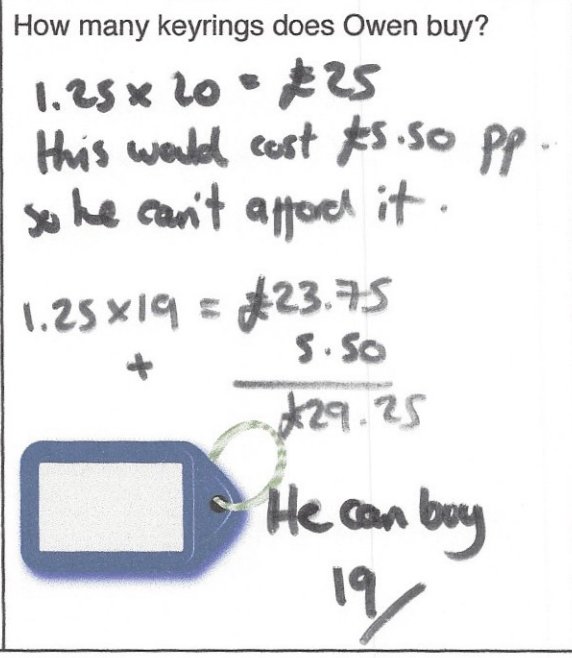 How many keyrings does Owen buy?
1.25 x 20 = £25
this would cost £5.50 pp.
so he can't afford it.
1.25 x 19 = £23.75
+ 5.50
£29.25
He can buy
19